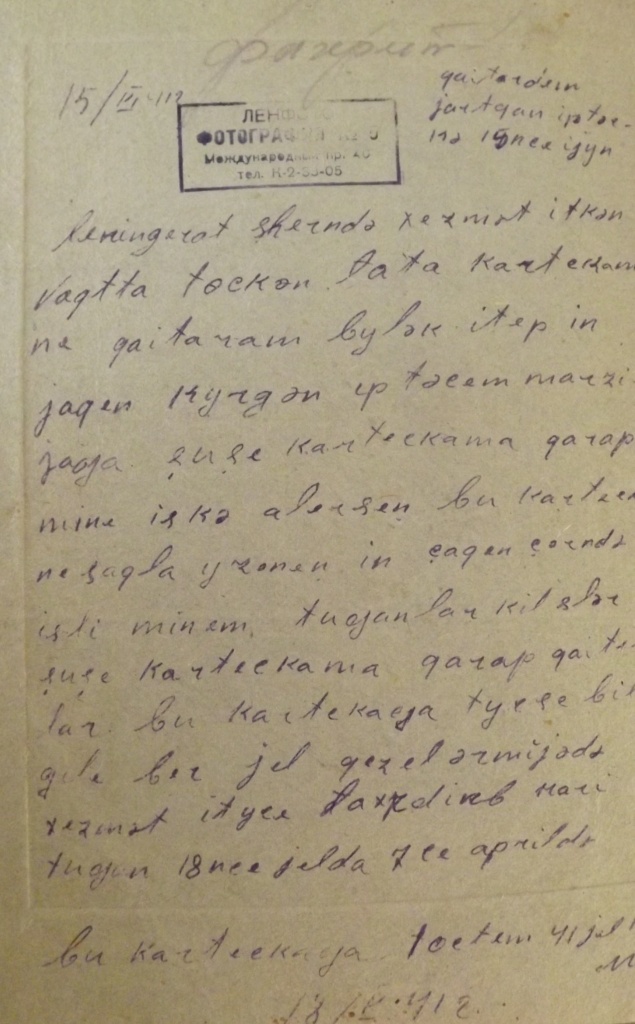 фахрит
15/III-41г
qaitardem
jartqan iptəc-
nə 15nce ijyn
ЛЕНФ
ФОТОГРАФИЯ
Международный пр.
тел. К-2-55-05
leningerat şherndə xezmət itkən
vaqtta təckən fata karteckam
ne qaitaram bylək itep in
jaqen kyrgən iptəcem marzi
jaga şuşe karteckama qarap
mine işkə alerseņ bu kartec
ne saqla yzeneņ in caqen cornda
işli minem tuqanlar kilsələr
şuşe karteckama qarap qaite
lar bu kartckaga tyrse bil
gele ber jel qezel ərmijədə
xezmət ityce
tugan 18nce jelda 7ce aprildə
bu karteckaga toctem 41 jel
18/II-41г.